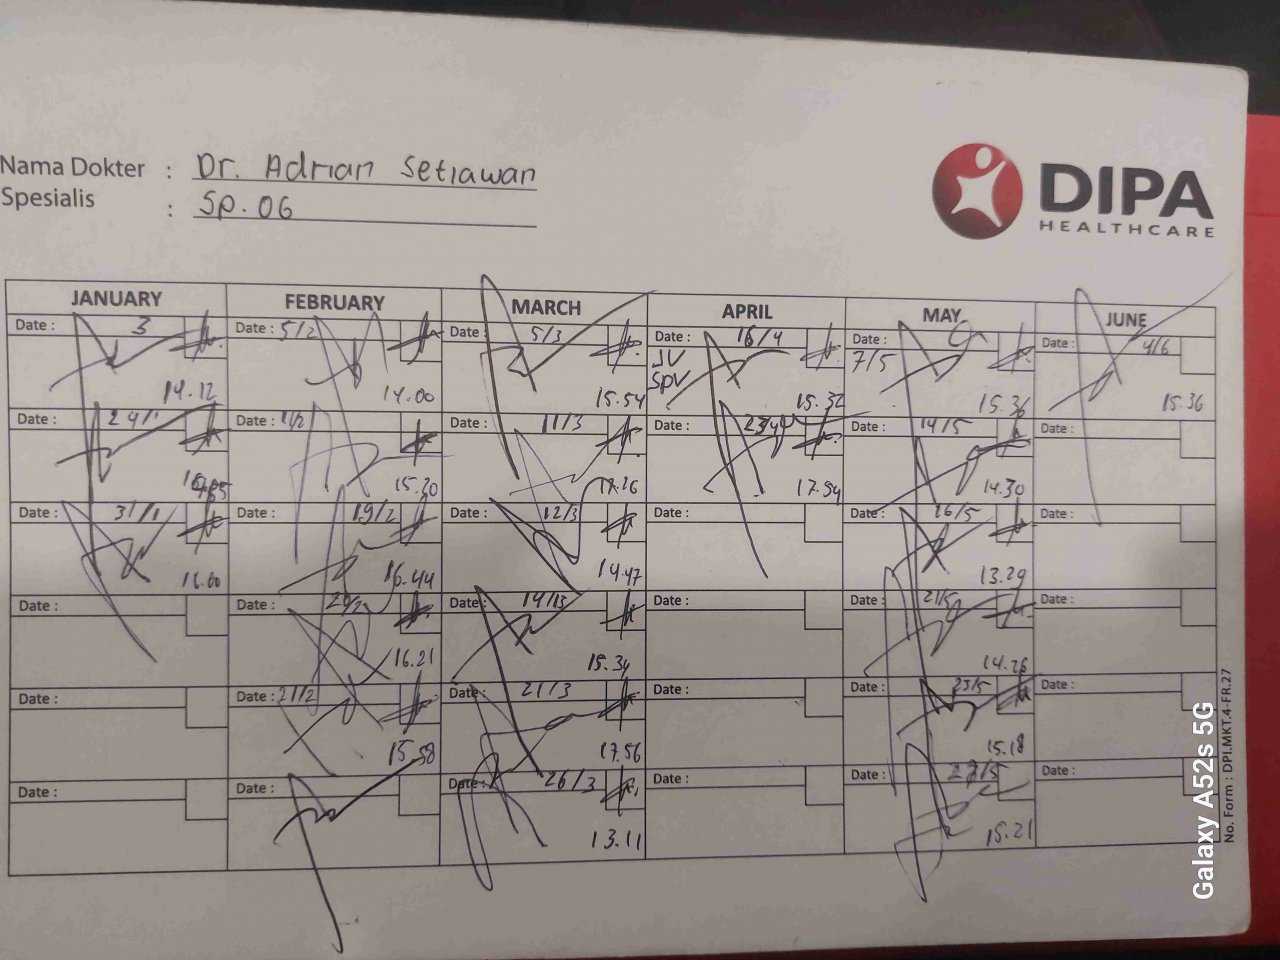 Nama Dokter : Dr. Adrian Setiawan
Spesialis : Sp. OG
DIPA
HEALTHCARE
JANUARY FEBRUARY MARCH APRIL MAY JUNE
Date : 3 Date : 5/2 Date : 5/3 Date : 16/4 Date : 7/5 Date : 4/6
JV
SPV
14.12 14.00 15.54 15.32 15.36 15.36
Date : 24/1 Date : Date : 11/3 Date : 23/4 Date : 14/5 Date :
15.20 17.26 17.54 14.30
Date : 31/1 Date : 19/2 Date : 12/3 Date : Date : 26/5 Date :
16.00 16.44 14.47 13.29
Date : Date : Date : 14/13 Date : Date : 21/5 Date :
16.21 15.34 14.26
Date : Date : 21/2 Date : 21/3 Date : Date : 25/5 Date :
15.58 17.56 15.18
Date : Date : Date : 26/3 Date : Date : 27/5 Date :
13.11 15.21
No. Form : DPI.MKT.4-FR.27
Galaxy A52s 5G